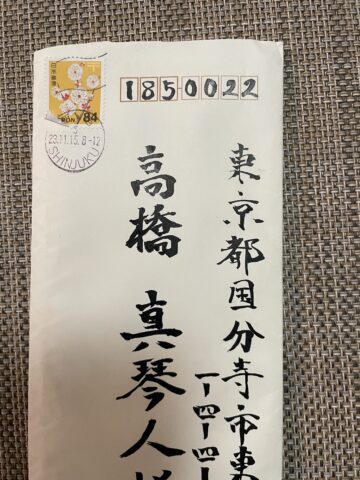 日本郵便
84
23.11.15. 8-12
SHINJUKU
1850022
東京都国分寺市東
一-四-四-
高橋 真琴人様